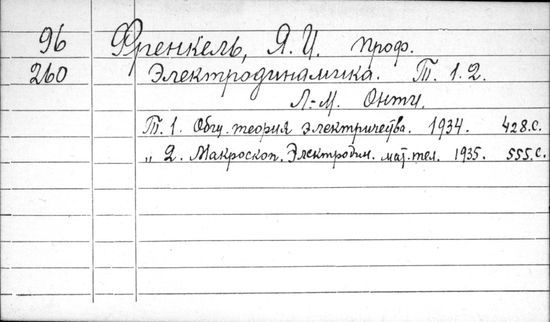 96 Френкель, Я.И. проф.
260 Электродинамика. Т. 1.2.
Л.-М. Онти.
Т. 1. Общ. теория электричества. 1934. 428.с.
„ 2. Макроскоп. Электродин. мат. тел. 1935. 555.с.